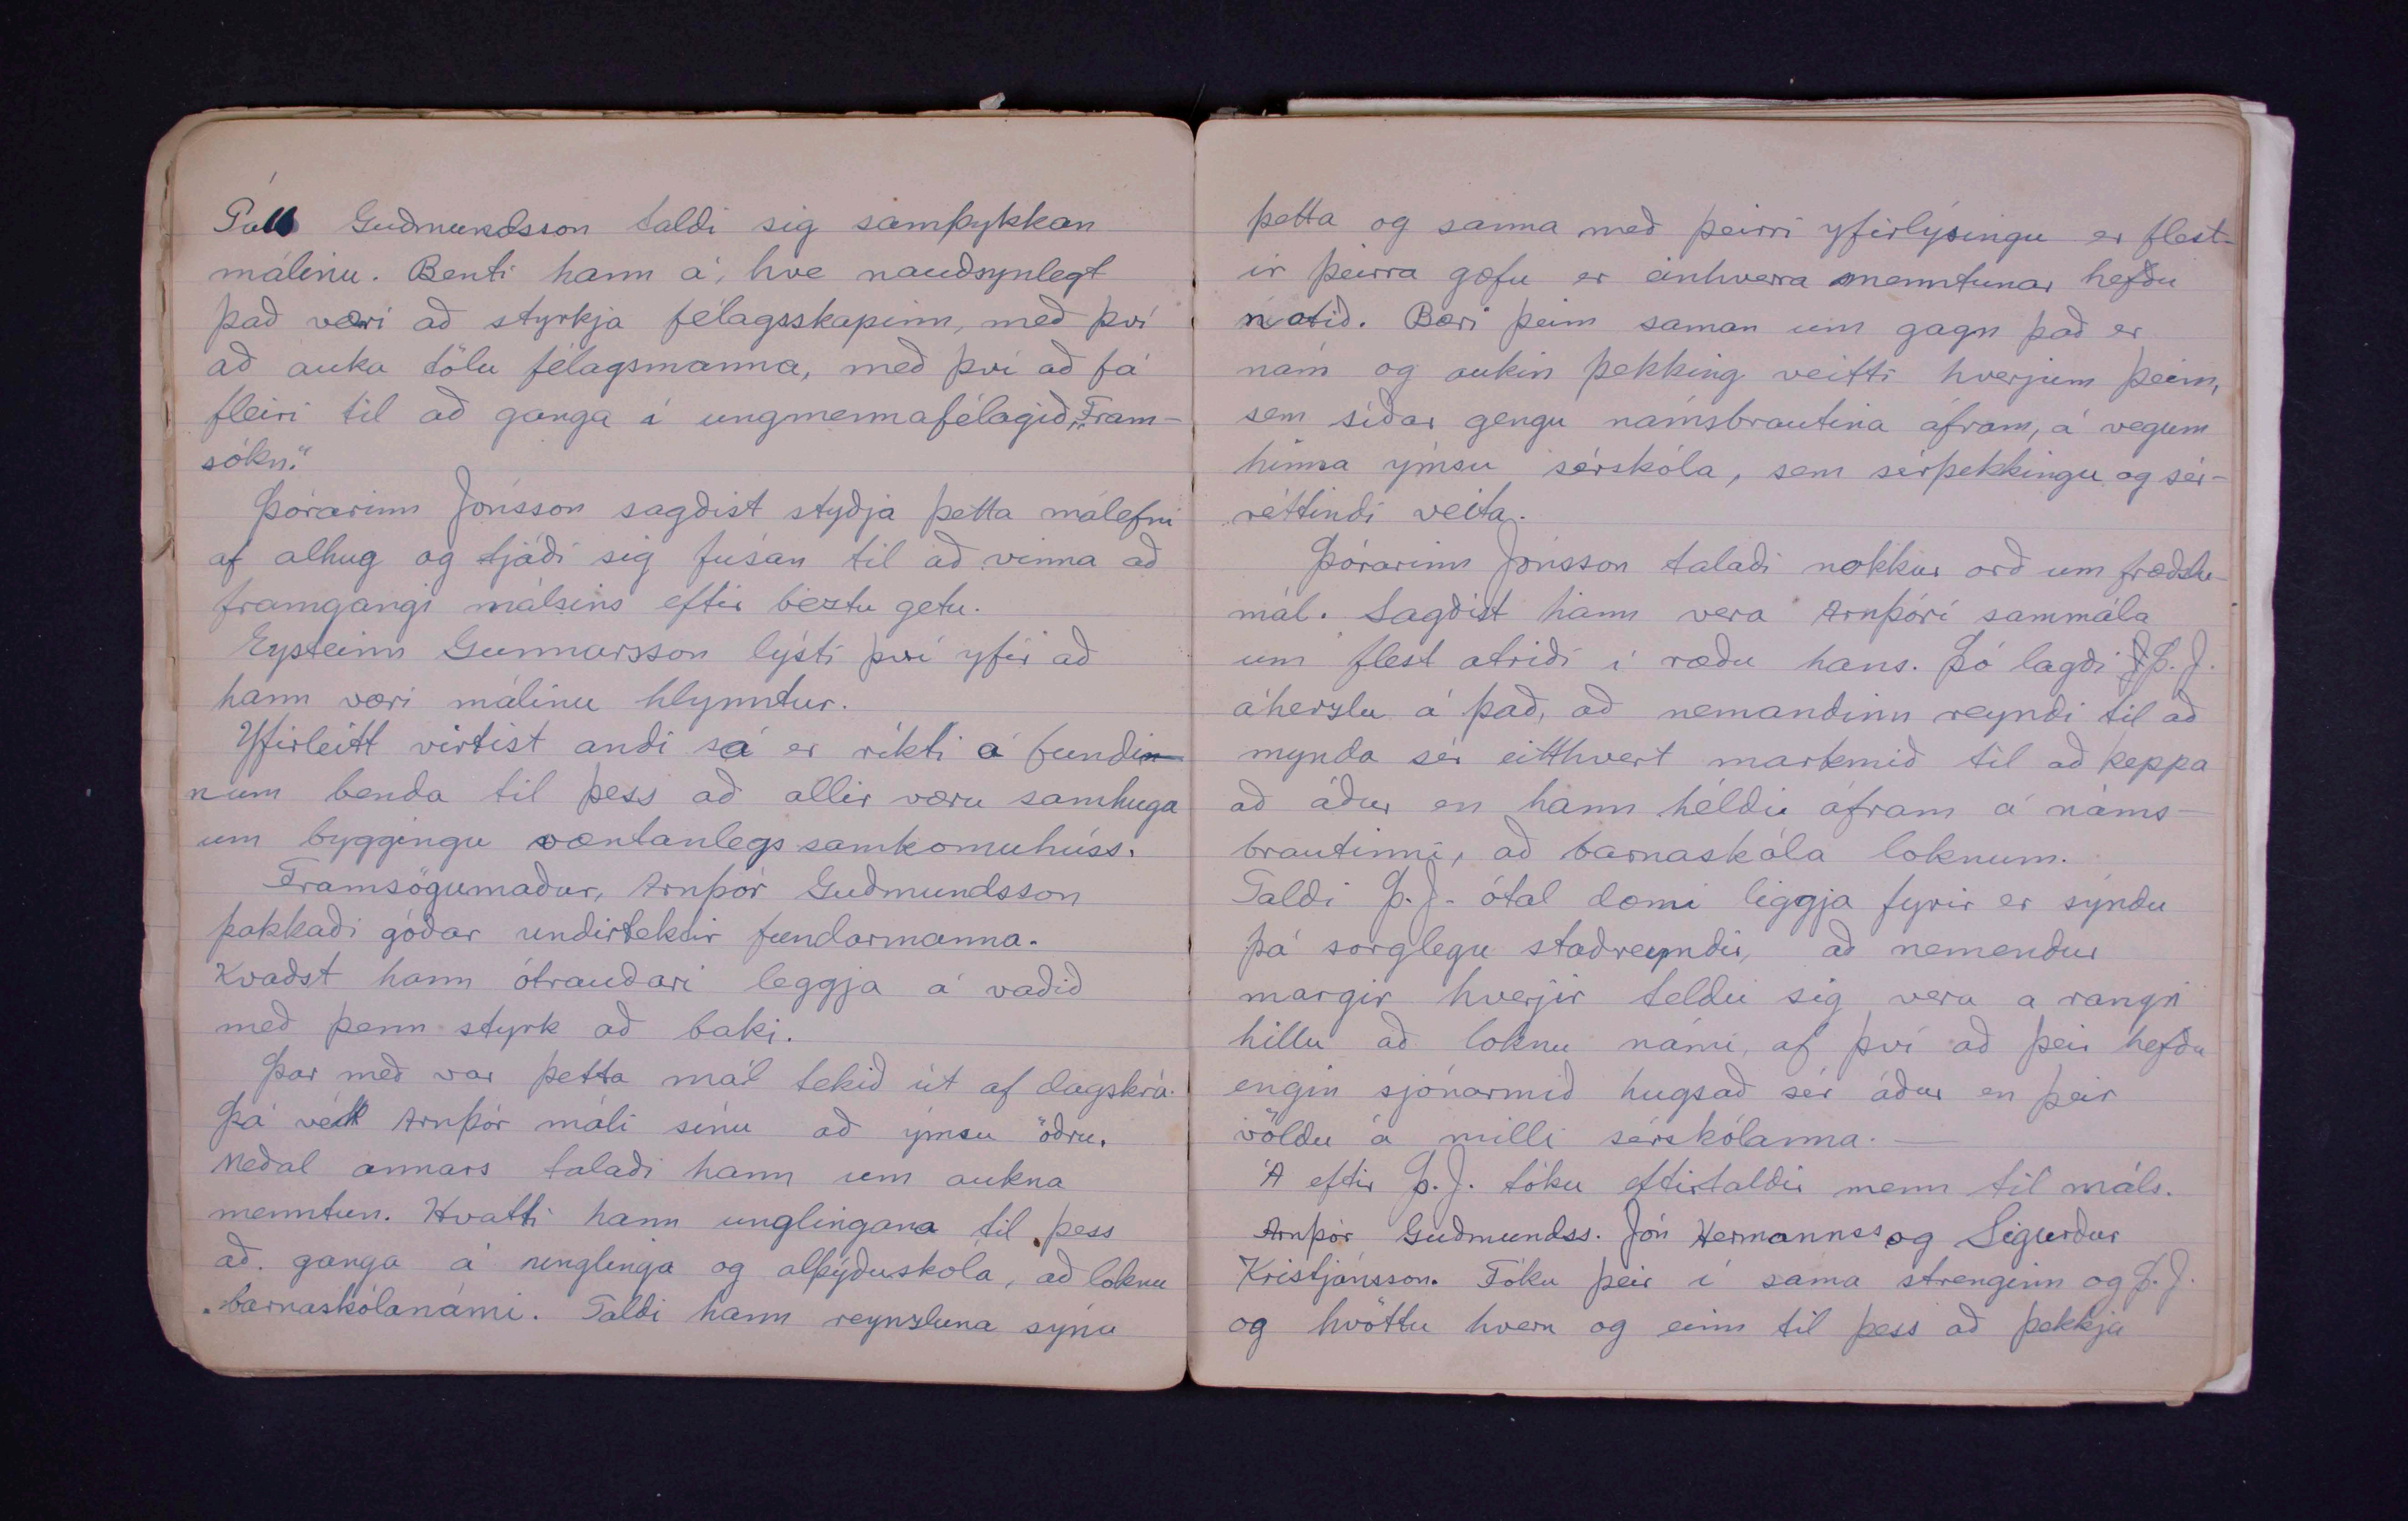 Páll Guðmundsson taldi sig samþykkan
málinu. Benti hann á, hve nauðsynlegt
það væri að styrkja félagsskapinn, með því
að auka tölu félagsmanna, með því að fá
fleiri til að ganga í ungmennafélagið „Fram-
sókn."
Þórarinn Jónsson sagðist styðja þetta málefni
af alhug og tjáði sig fúsan til að vinna að
framgangi málsins eftir beztu getu.
Eysteinn Gunnarsson lýsti því yfir að
hann væri málinu hlynntur.
Yfirleitt virtist andi sá er ríkti á fundi
num benda til þess að allir væru samhuga
um byggingu væntanlegs samkomuhúss.
Framsögumaður, Arnþór Guðmundsson
þakkaði góðar undirtektir fundarmanna.
Kvaðst hann ótrauðari leggja á vaðið
með þenn styrk að baki.
Þar með var þetta mál tekið út af dagskrá.
Þá veik Arnþór máli sínu að ýmsu öðru.
Meðal annars talaði hann um aukna
menntun. Hvatti hann unglingana til þess
að ganga á unglinga og alþýðuskóla, að loknu
barnaskólanámi. Taldi hann reynzluna sýna
þetta og sanna með þeirri yfirlýsingu er flest-
ir þeirra gæfu er einhverra menntunar hefðu
notið. Bæri þeim saman um gagn það er
nám og aukin þekking veitti hverjum þeim,
sem síðar gengu námsbrautina áfram, á vegum
hinna ýmsu sérskóla, sem sérþekkingu og sér-
réttindi veita.
Þórarinn Jónsson talaði nokkur orð um fræðslu-
mál. Sagðist hann vera Arnþóri sammála
um flest atriði í ræðu hans. Þó lagði Þ.J.
áherzlu á það, að nemandinn reyndi til að
mynda sér eitthvert markmið til að keppa
að áður en hann héldu áfram á náms-
brautinni, að barnaskóla loknum.
Taldi Þ.J. ótal dæmi liggja fyrir er sýndu
þá sorglegu staðreyndir, að nemendur
margir hverjir teldu sig vera a rangri
hillu að loknu námi, af því að þeir hefðu
engin sjónarmið hugsað sér áður en þeir
völdu á milli sérskólanna. —
Á eftir Þ.J. tóku eftirtaldir menn til máls.
Arnþór Guðmundss. Jón Hermannss og Sigurður
Kristjánsson. Tóku þeir í sama strenginn og Þ.J.
og hvöttu hvern og einn til þess að þekkja